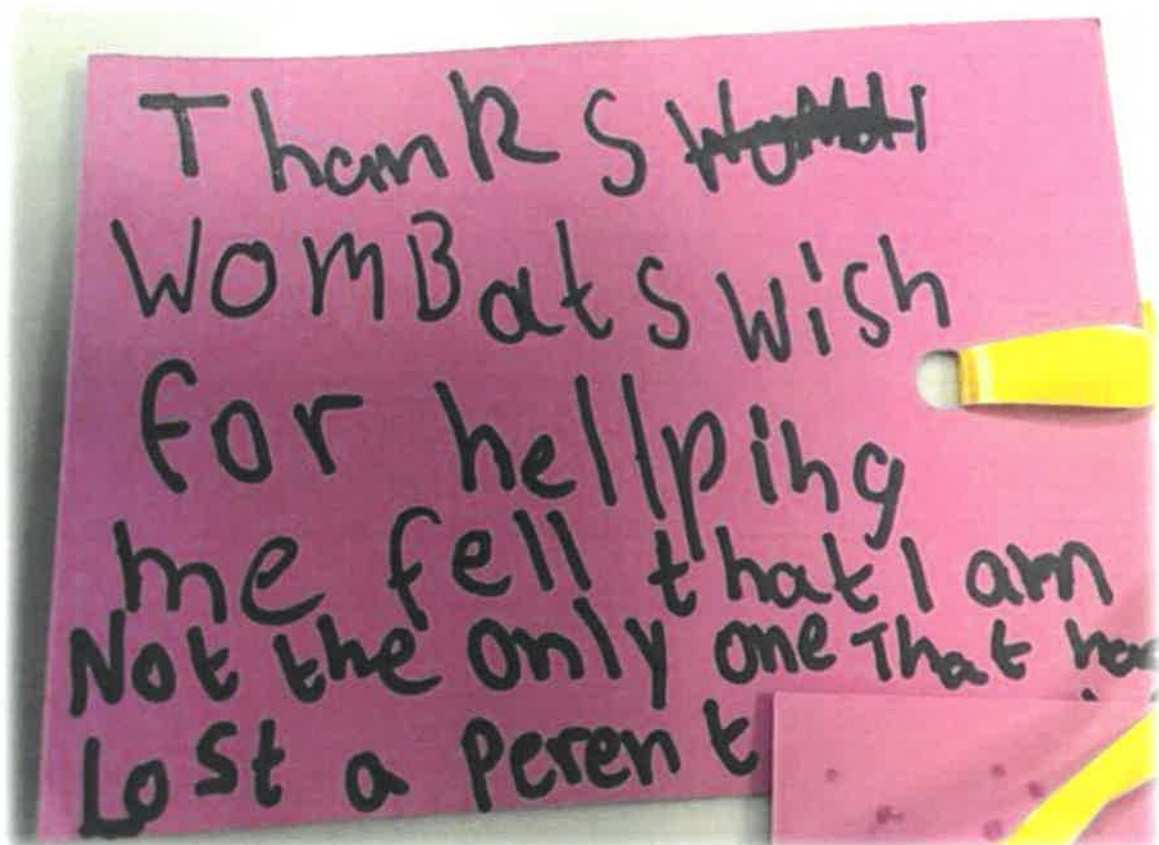 Thanks
WomBats wish
for hellping
me fell that I am
Not the only one That has
Lost a Perent